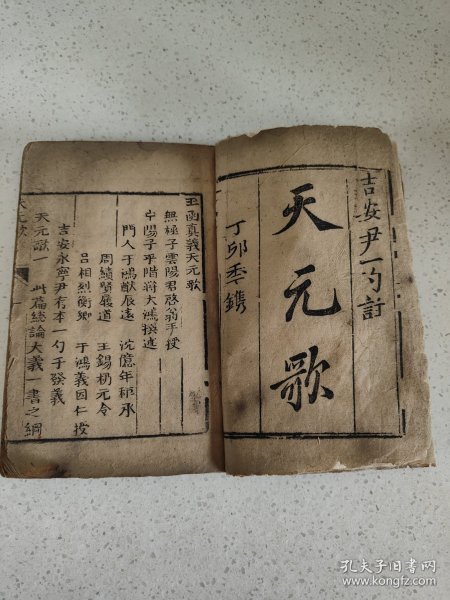 吉安尹一勺註
天元歌
丁卯季鐫
玉函真義天元歌
無極子雲陽君啓翁手授
中陽子平階蔣大鴻撰述
門人于鴻猷辰遠 沈億年矩承
周績賢履道 王錫礽元令
呂相烈衡卿 于鴻義因仁授
吉安永寧尹有本一勺子發義
天元歌一 此篇總論大義一書之綱
天元歌
孔夫子旧书网
www.kongfz.com